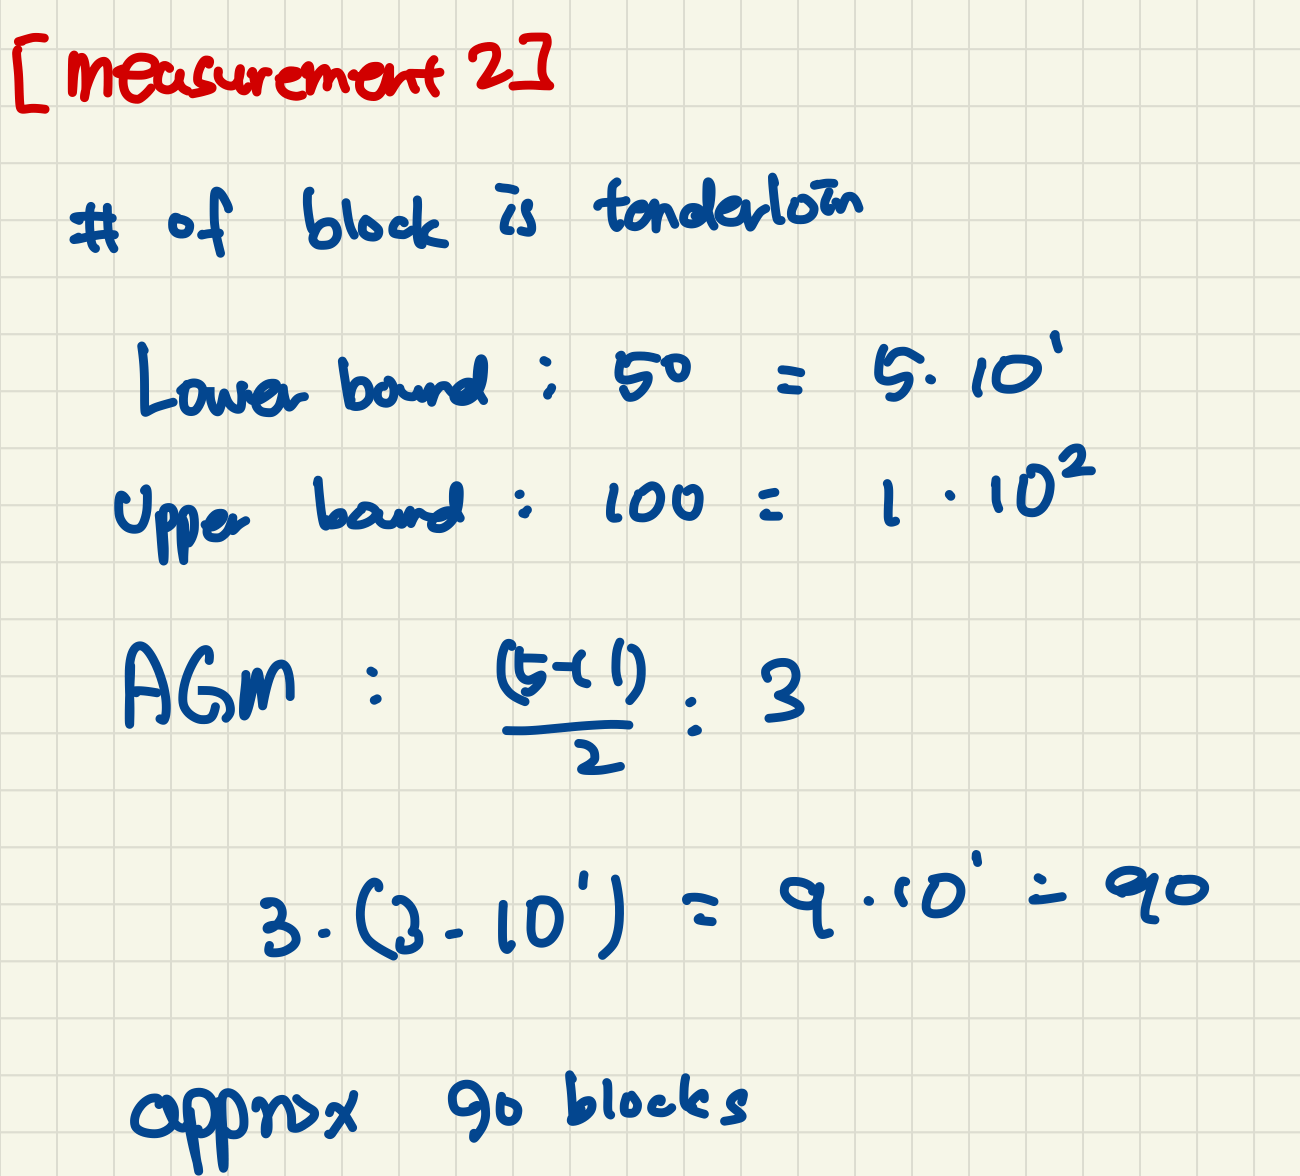 [measurement 2]
# of block is tenderloin
Lower bound : 50 = 5 · 10¹
Upper bound : 100 = 1 · 10²
AGM : (5+1)/2 : 3
3 · (3 · 10¹) = 9 · 10¹ = 90
approx 90 blocks